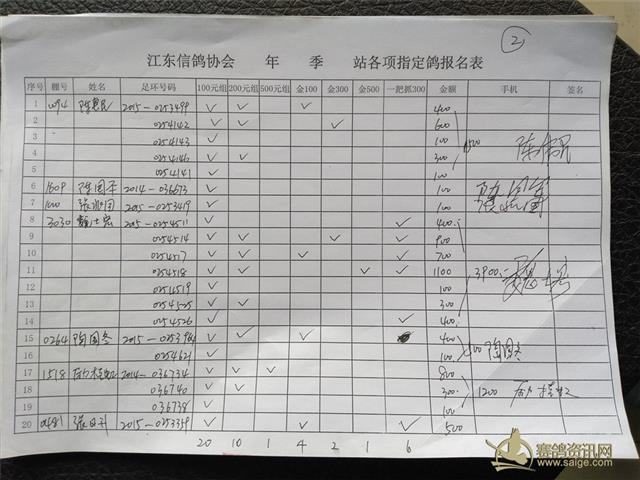 ②
江东信鸽协会 年 季 站各项指定鸽报名表
序号 棚号 姓名 足环号码 100元组 200元组 500元组 金100 金300 金500 一把抓300 金额 手机 签名
1 2015-0253499 ✓ ✓ ✓ 400
2 0254142 ✓ ✓ ✓ 600
3 0254143 ✓ 100
4 0254146 ✓ ✓ 300
5 0254141 ✓ 100
6 1609 陈国平 2014-036673 ✓ 100
7 2015-0253419 ✓ 100
8 3030 2015-0254511 ✓ ✓ 400
9 0254514 ✓ ✓ ✓ ✓ 900
10 0254517 ✓ ✓ ✓ ✓ 700
11 0254518 ✓ ✓ ✓ ✓ 1100 3900
12 0254519 ✓ 100
13 0254525 ✓ ✓ 300
14 0254526 ✓ ✓ 400
15 0264 陶国冬 2015-0253964 ✓ ✓ ✓ 400
16 0254621 ✓ 100 陶国冬
17 1518 2014-036734 ✓ ✓ ✓ 800
18 036740 ✓ ✓ 300 1200
19 036738 ✓ 100
20 0481 2015-0253359 ✓ ✓ ✓ 500
20 10 1 4 2 1 6
赛鸽资讯网
www.saige.com